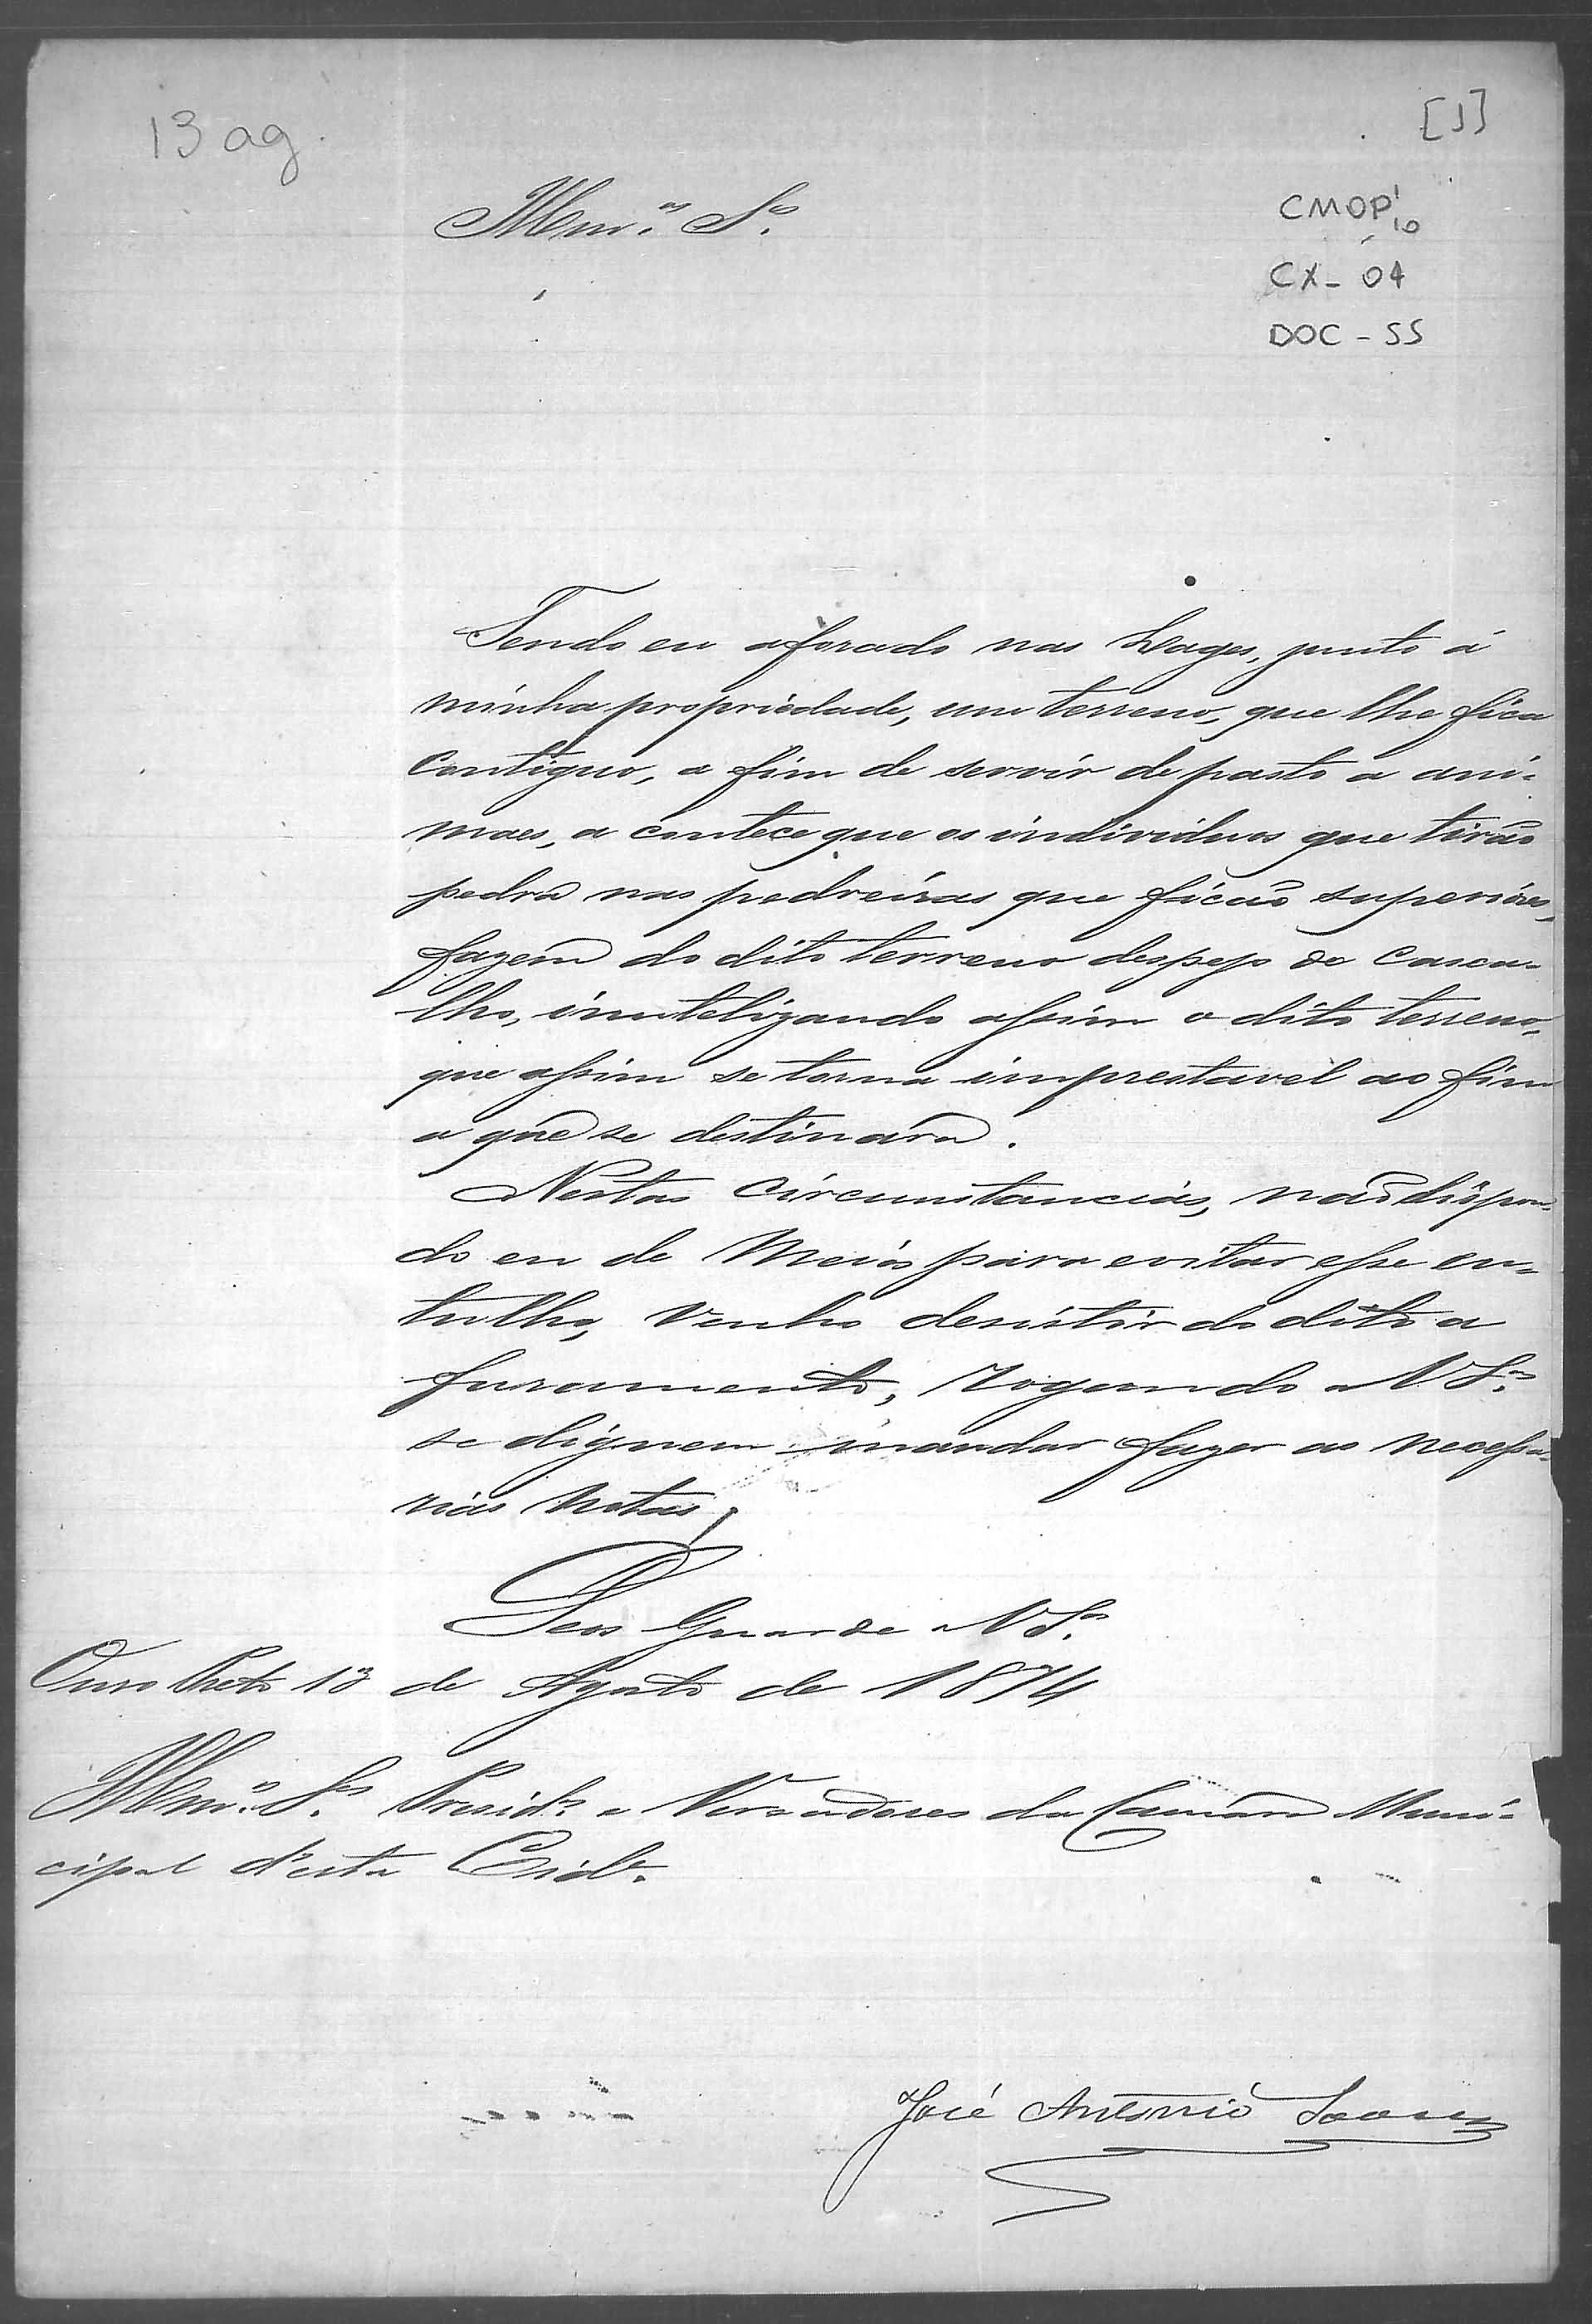 13 ag.
[1]
CMOP 1/10
CX - 04
DOC - 55
Illm.os S.es
Tendo eu aforado nas Lages, junto á
minha propriedade, um terreno, que lhe fica
contiguo, a fim de servir de pasto a ani-
maes, a contece que os individuos que tirão
pedra nas pedreiras que ficão superiores,
fazem do dito terreno despejo de casca-
lho, inutelizando assim o dito terreno,
que assim se torna imprestavel ao fim
a que se destinára.
Nestas circumstancias, não dispon-
do eu de meios para evitar esse en-
tulho, venho desistir do dito a
furamento, rogando a V S.as
se dignem mandar fazer as necessa-
rias notas,
Deos Guarde a V S.as
Ouro Preto 13 de Agosto de 1874
Illm.os S.es Presid.e e Vereadores da Camara Muni-
cipal d'esta Cid.e
José Antonio Soares